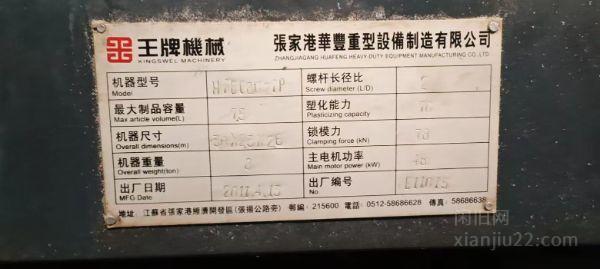 王牌機械
KINGSWEL MACHINERY
張家港華豐重型設備制造有限公司
ZHANGJIAGANG HUAFENG HEAVY-DUTY EQUIPMENT MANUFACTURING CO.,LTD
机器型号
Model
螺杆长径比
Screw diameter (L/D)
最大制品容量
Max article volume(L)
塑化能力
Plasticizing capacity
机器尺寸
Overall dimensions(m)
锁模力
Clamping force (kN)
78
机器重量
Overall weight(ton)
主电机功率
Main motor power (kW)
48
出厂日期
MFG Date
2011.4.13
出厂编号
No.
E11015
地址: 江蘇省張家港經濟開發區(張揚公路旁) 郵編: 215600 電話: 0512-58686628 傳真: 58686638
闲旧网
xianjiu22.com